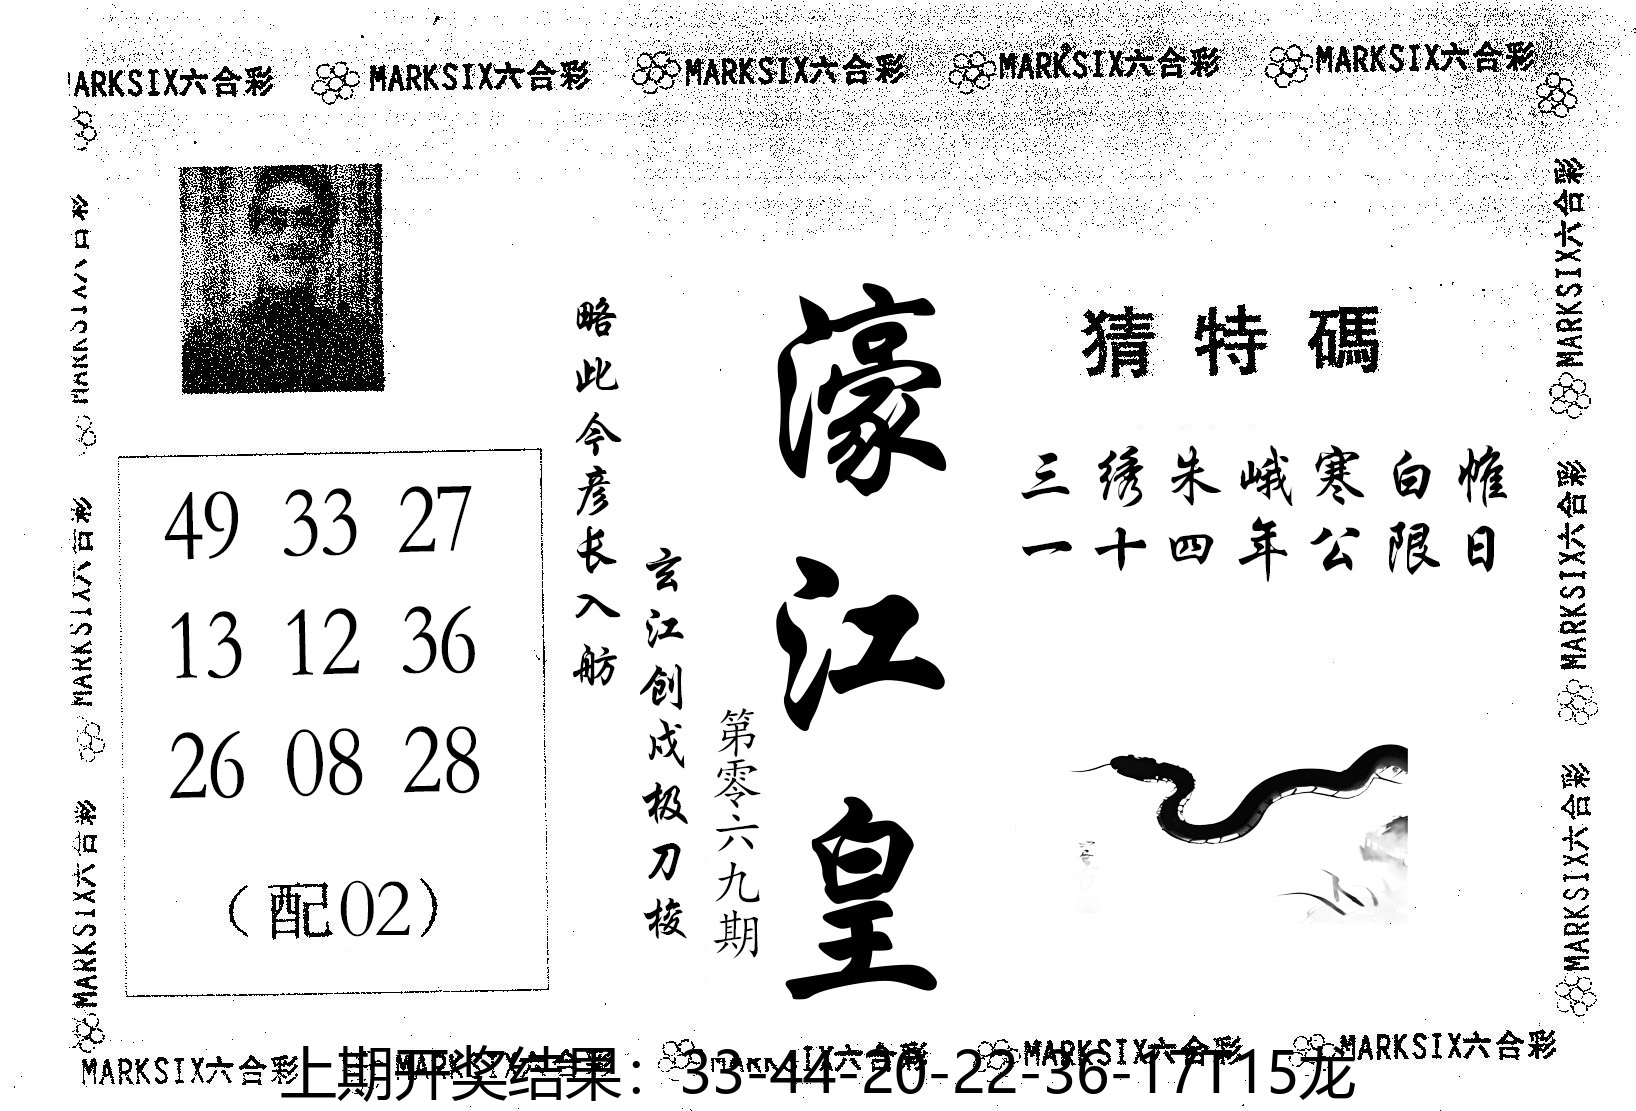 MARKSIX六合彩 MARKSIX六合彩 MARKSIX六合彩 MARKSIX六合彩 MARKSIX六合彩
MARKSIX六合彩
MARKSIX六合彩
MARKSIX六合彩
49 33 27
13 12 36
26 08 28
（配02）
略此今彦长入舫
玄江创戍极刀梭
第零六九期
濠江皇
猜特碼
三绣朱峨寒白帷
一十四年公限日
MARKSIX六合彩
MARKSIX六合彩
MARKSIX六合彩
MARKSIX六合彩 MARKSIX六合彩 MARKSIX六合彩 MARKSIX六合彩 MARKSIX六合彩
上期开奖结果：33-44-20-22-36-17T15龙